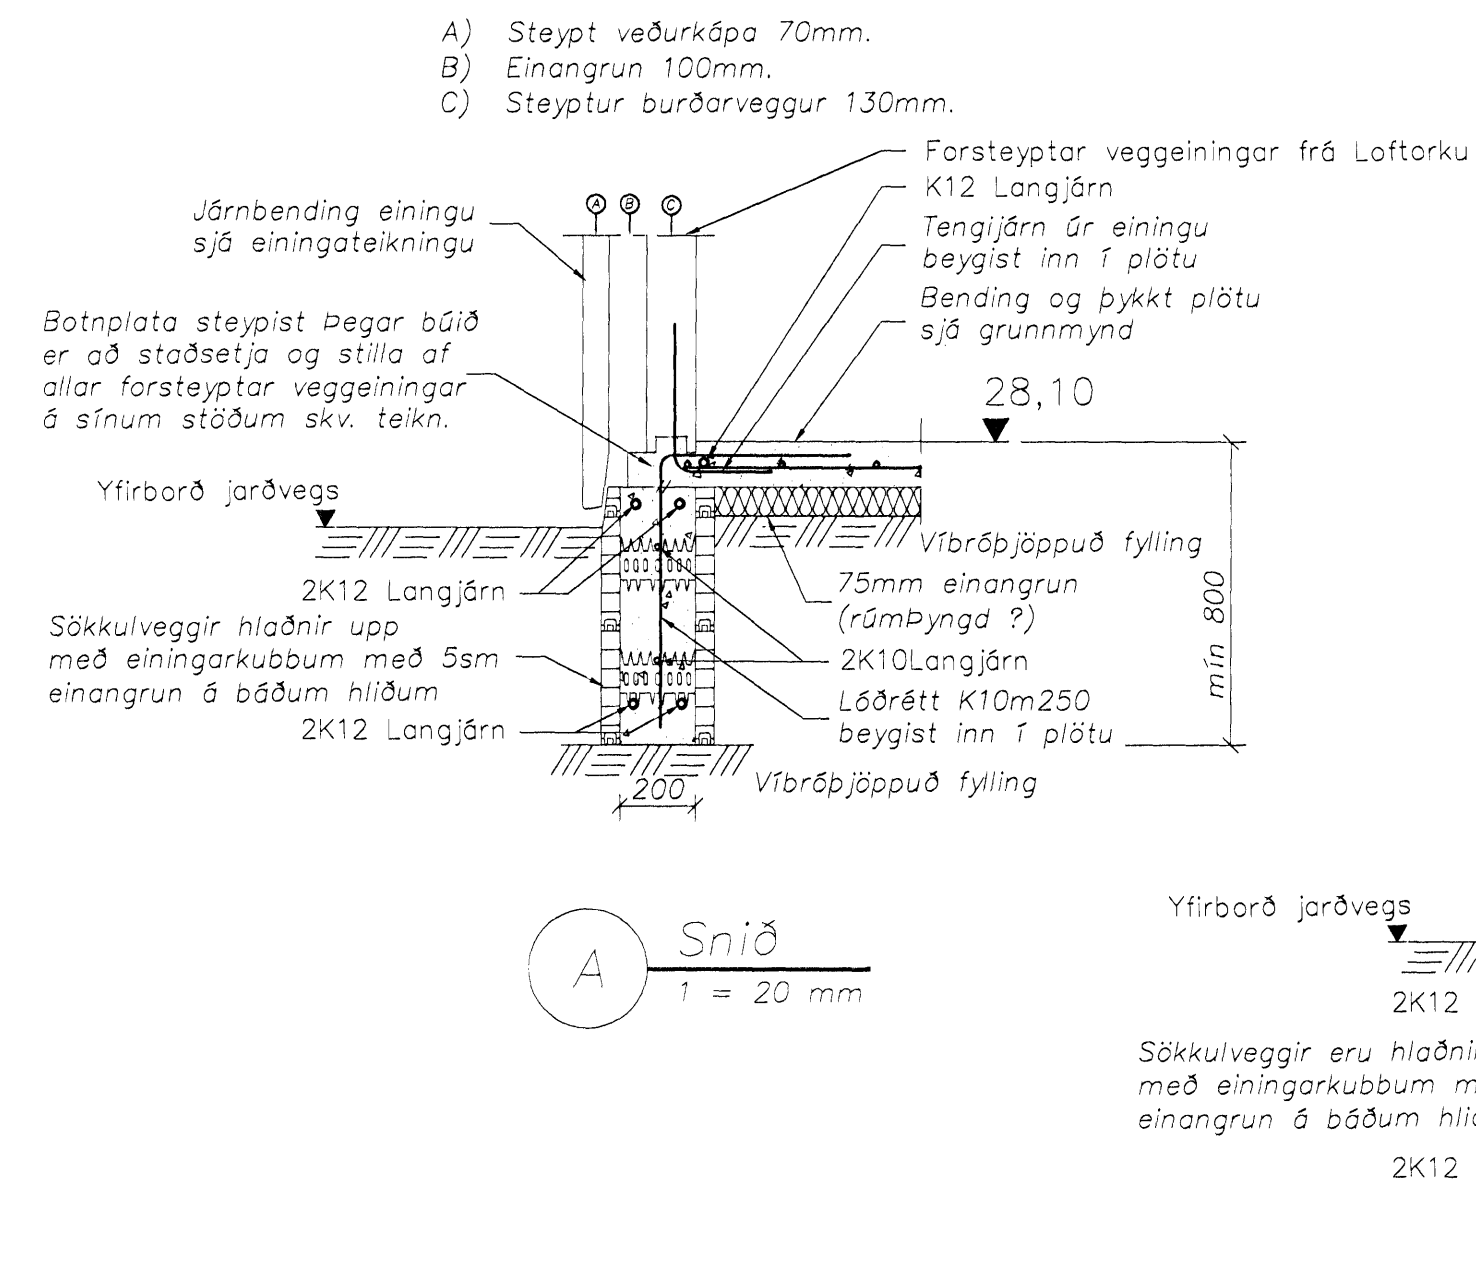 A) Steypt veðurkápa 70mm.
B) Einangrun 100mm.
C) Steyptur burðarveggur 130mm.
Forsteyptar veggeiningar frá Loftorku
K12 Langjárn
Tengijárn úr einingu
beygist inn í plötu
Bending og þykkt plötu
sjá grunnmynd
A
B
C
Járnbending einingu
sjá einingateikningu
Botnplata steypist Þegar búið
er að staðsetja og stilla af
allar forsteyptar veggeiningar
á sínum stöðum skv. teikn.
28,10
Yfirborð jarðvegs
Víbróþjöppuð fylling
2K12 Langjárn
75mm einangrun
(rúmÞyngd ?)
Sökkulveggir hlaðnir upp
með einingarkubbum með 5sm
einangrun á báðum hliðum
2K10Langjárn
2K12 Langjárn
Lóðrétt K10m250
beygist inn í plötu
mín 800
Víbróþjöppuð fylling
200
A
Snið
1 = 20 mm
Yfirborð jarðvegs
2K12
Sökkulveggir eru hlaðnir
með einingarkubbum m
einangrun á báðum hlið
2K12